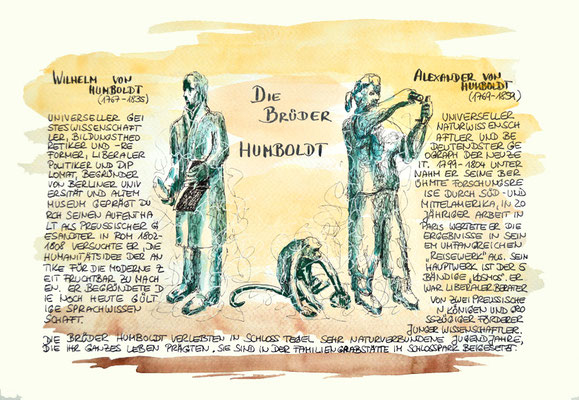 WILHELM VON
HUMBOLDT
(1767-1835)
UNIVERSELLER GEI
STESWISSENSCHAFT
LER, BILDUNGSTHEO
RETIKER UND -RE
FORMER, LIBERALER
POLITIKER UND DIP
LOMAT, BEGRÜNDER
VON BERLINER UNIV
ERSITÄT UND ALTEM
MUSEUM GEPRÄGT DU
RCH SEINEN AUFENTHA
LT ALS PREUSSISCHER G
ESANDTER IN ROM 1802-
1808 VERSUCHTE ER, DIE
HUMANITÄTSIDEE DER AN
TIKE FÜR DIE MODERNE Z
EIT FRUCHTBAR ZU MACH
EN. ER BEGRÜNDETE D
IE NOCH HEUTE GÜLT
IGE SPRACHWISSEN
SCHAFT.
DIE
BRÜDER
HUMBOLDT
ALEXANDER VON
HUMBOLDT
(1769-1859)
UNIVERSELLER
NATURWISSENSCH
AFTLER UND BE
DEUTENDSTER GE
OGRAPH DER NEUZE
IT. 1799-1804 UNTER
NAHM ER SEINE BER
ÜHMTE FORSCHUNGSRE
ISE DURCH SÜD- UND
MITTELAMERIKA, IN 20
JÄHRIGER ARBEIT IN
PARIS WERTETE ER DIE
ERGEBNISSE IN SEIN
EM UMFANGREICHEN
„REISEWERK" AUS. SEIN
HAUPTWERK IST DER 5
BÄNDIGE „KOSMOS". ER
WAR LIBERALER BERATER
VON ZWEI PREUSSISCHE
N KÖNIGEN UND GRO
SSZÜGIGER FÖRDERER
JUNGER WISSENSCHAFTLER.
DIE BRÜDER HUMBOLDT VERLEBTEN IN SCHLOSS TEGEL SEHR NATURVERBUNDENE JUGENDJAHRE,
DIE IHR GANZES LEBEN PRÄGTEN. SIE SIND IN DER FAMILIENGRABSTÄTTE IM SCHLOSSPARK BEIGESETZT.